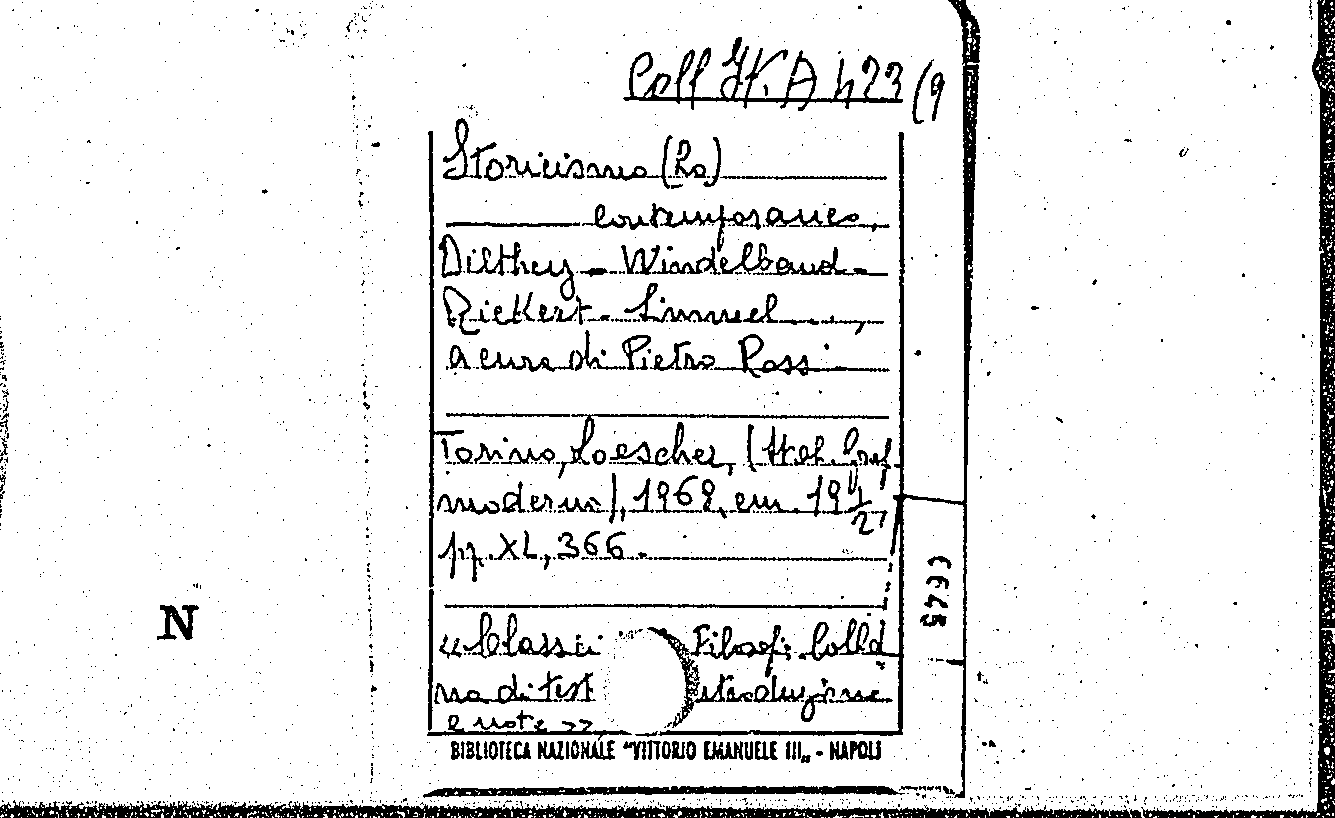 Coll H.A 423 (9
Storicismo (Lo)
contemporaneo,
Dilthey - Windelband -
Rickert - Simmel ...,
a cura di Pietro Rossi
Torino, Loescher, (
moderna), 1968, cm. 19 1/2,
pp. XL, 366.
«Classici Filosofi. Colla
na di test
e note»
BIBLIOTECA NAZIONALE "VITTORIO EMANUELE III„ - NAPOLI
N
6645